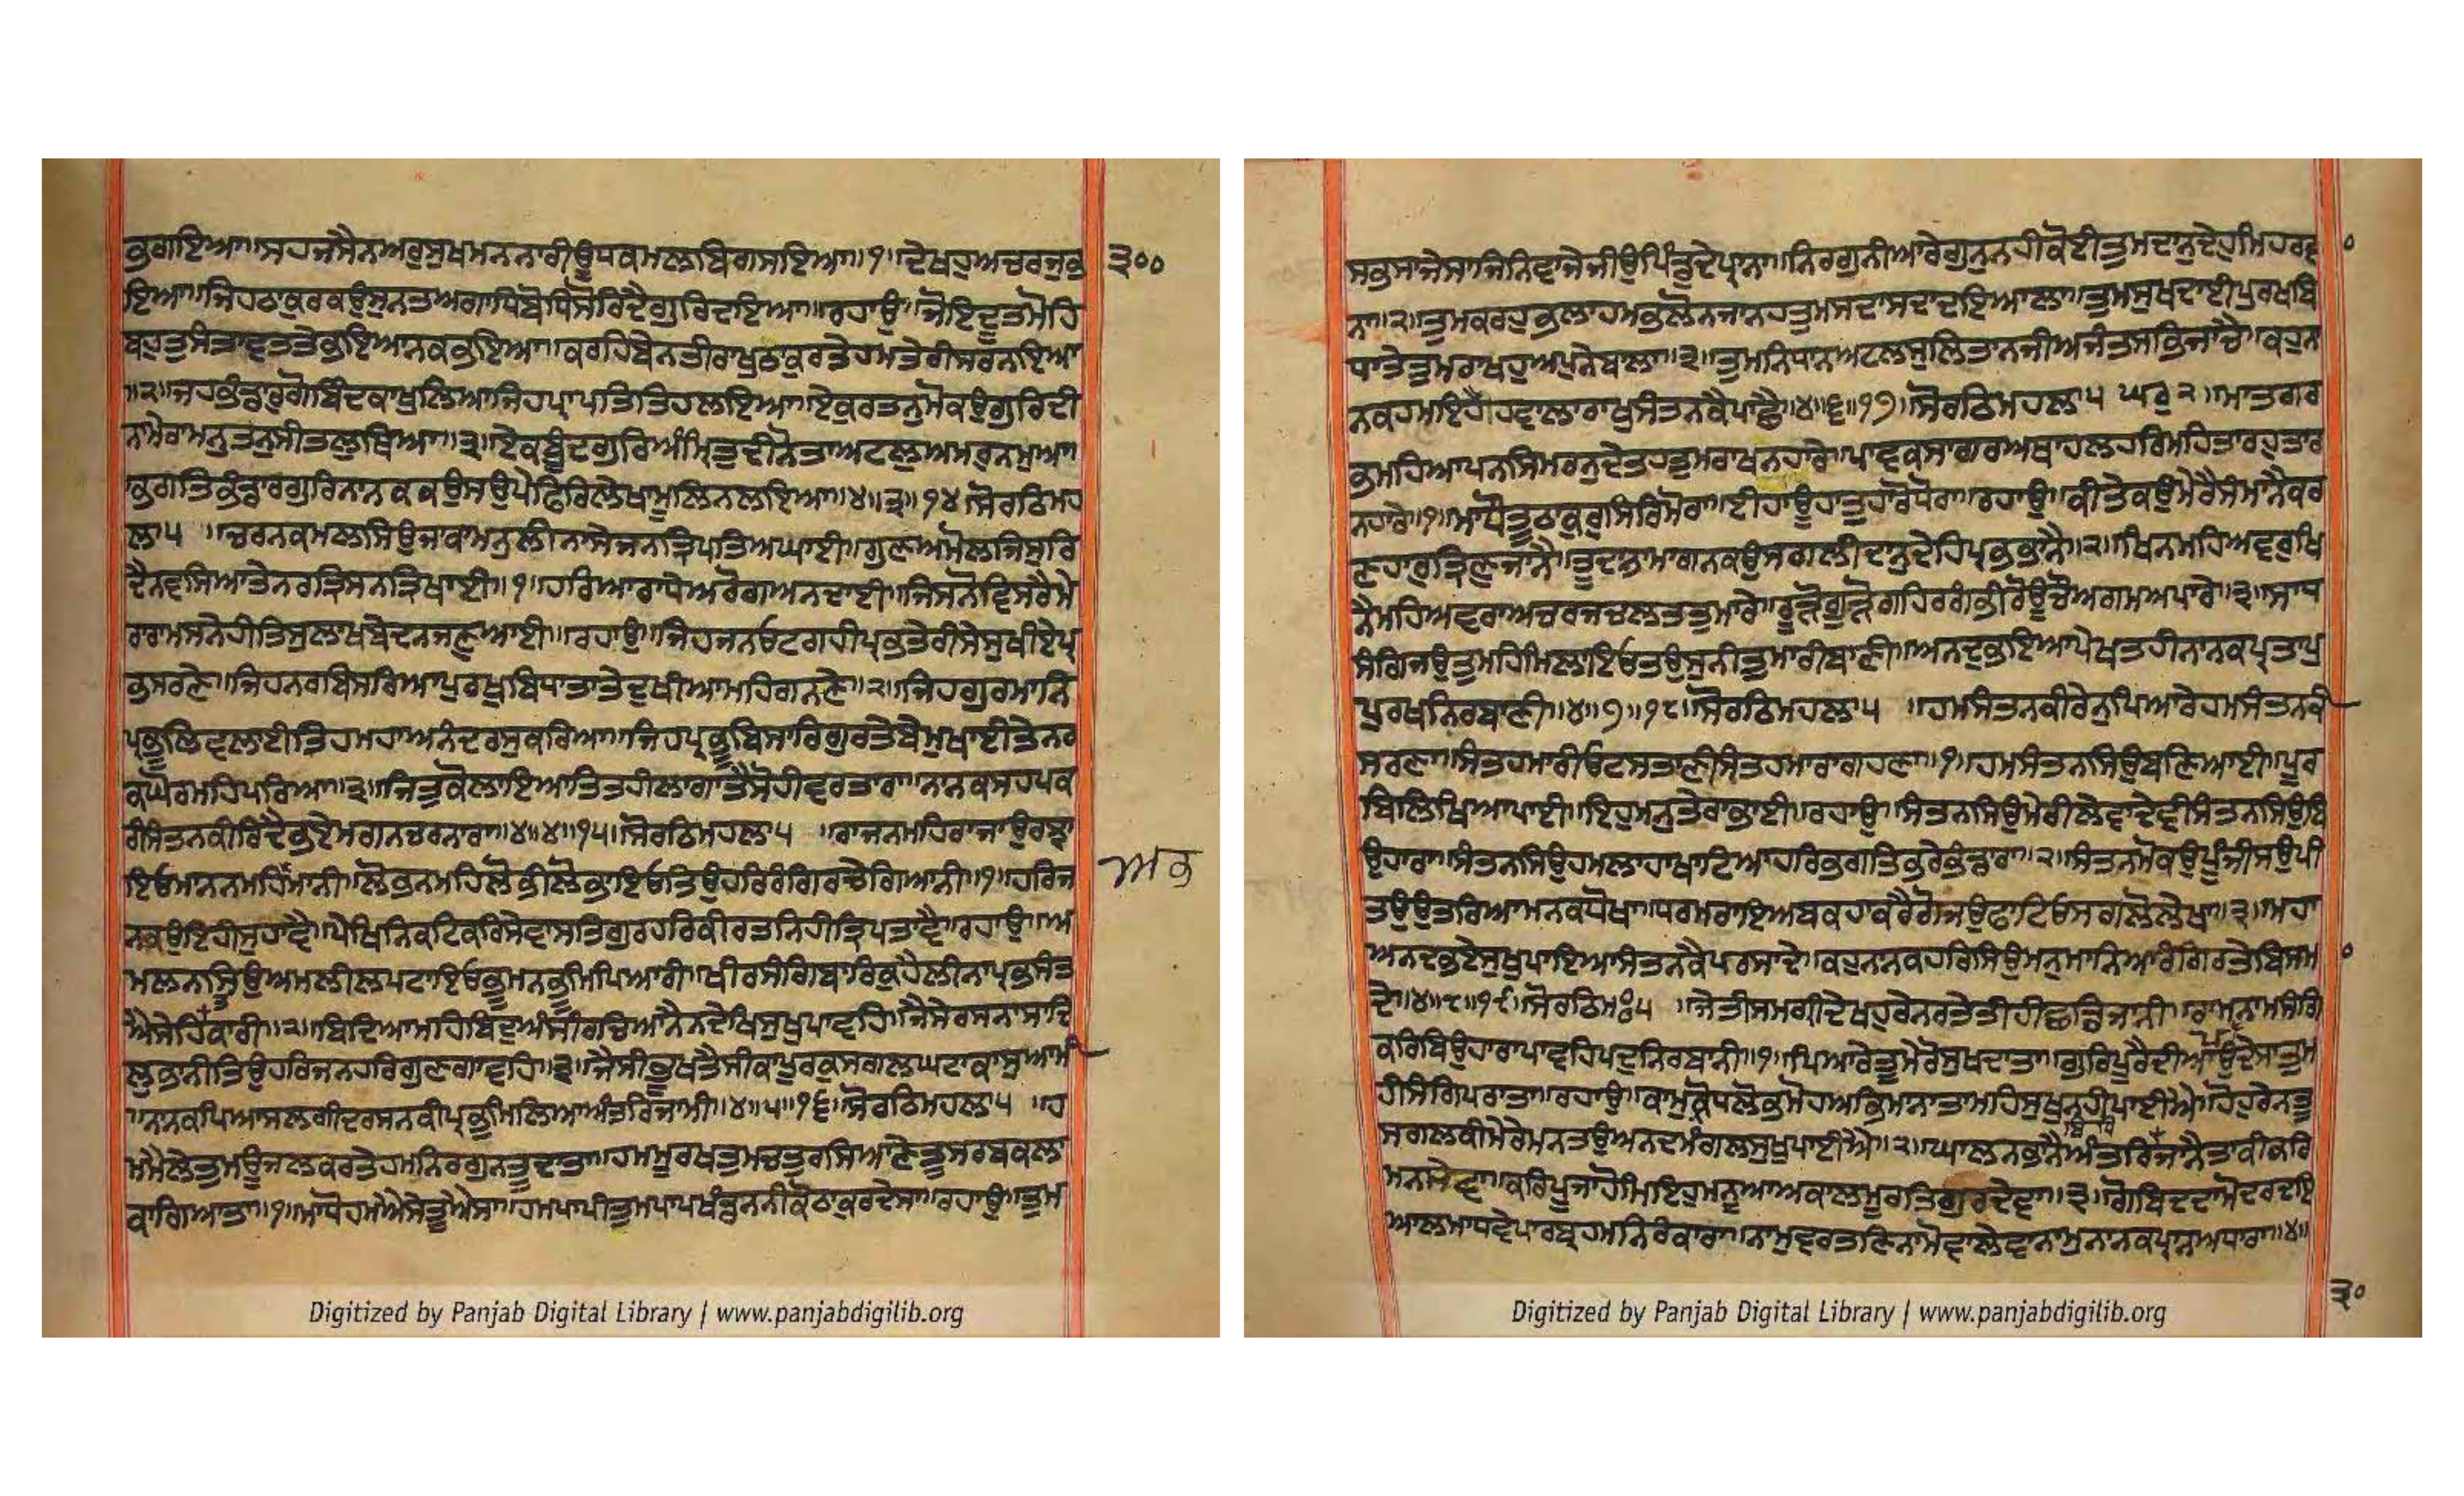 ਭੁਗਾਇਆ॥ਸਹਜਸੈਨਅਰੁਸੁਖਮਨਨਾਰੀਊਧਕਮਲਬਿਗਸਇਆ॥੧॥ਦੇਖਹੁਅਚਰਜੁਭ
ਇਆ॥ਜਿਹਠਾਕੁਰਕਉਸੁਨਤਅਗਾਧਿਬੋਧਿਸੋਰਿਦੈਗੁਰਿਦਇਆ॥ਰਹਾਉ॥ਜੋਇਦੂਤਮੋਹਿ
ਬਹੁਤੁਸੰਤਾਵਤਤੇਭਇਆਨਕਭਇਆ॥ਕਰਹਿਬੇਨਤੀਰਾਖੁਠਾਕੁਰਤੇਹਮਤੇਰੀਸਰਨਇਆ
॥੨॥ਜਹਭੰਡਾਰੁਗੋਬਿੰਦਕਾਖੁਲਿਆਜਿਹਪ੍ਰਾਪਤਿਤਿਹਲਇਆ॥ਏਕੁਰਤਨੁਮੋਕਉਗੁਰਿਦੀ
ਨਾਮੇਰਾਮਨੁਤਨੁਸੀਤਲੁਥਿਆ॥੩॥ਏਕਬੂੰਦਗੁਰਿਅੰਮ੍ਰਿਤੁਦੀਨੋਤਾਅਟਲੁਅਮਰੁਨਮੁਆ॥
ਭਗਤਿਭੰਡਾਰਗੁਰਿਨਾਨਕਕਉਸਉਪੇਫਿਰਿਲੇਖਾਮੂਲਿਨਲਇਆ॥੪॥੩॥੧੪॥ਸੋਰਠਿਮਹ
ਲਾ੫ ॥ਚਰਨਕਮਲਸਿਉਜਾਕਾਮਨੁਲੀਨਾਸੇਜਨਤ੍ਰਿਪਤਿਅਘਾਈ॥ਗੁਣਅਮੋਲਜਿਸੁਰਿ
ਦੈਨਵਸਿਆਤੇਨਰਤ੍ਰਿਸਨਤ੍ਰਿਖਾਈ॥੧॥ਹਰਿਆਰਾਧੇਅਰੋਗਅਨਦਾਈ॥ਜਿਸਨੋਵਿਸਰੈਮੇ
ਰਾਰਾਮਸਨੇਹੀਤਿਸੁਲਾਖਬੇਦਨਜਣੁਆਈ॥ਰਹਾਉ॥ਜਿਹਜਨਓਟਗਹੀਪ੍ਰਭਤੇਰੀਸੇਸੁਖੀਏਪ੍ਰ
ਭਸਰਣੇ॥ਜਿਹਨਰਬਿਸਰਿਆਪੁਰਖੁਬਿਧਾਤਾਤੇਦੁਖੀਆਮਹਿਗਨਣੇ॥੨॥ਜਿਹਗੁਰਮਾਨਿ
ਪ੍ਰਭੂਲਿਵਲਾਈਤਿਹਮਹਾਅਨੰਦਰਸੁਕਰਿਆ॥ਜਿਹਪ੍ਰਭੂਬਿਸਾਰਿਗੁਰਤੇਬੇਮੁਖਾਈਤੇਨਰ
ਕਘੋਰਮਹਿਪਰਿਆ॥੩॥ਜਿਤੁਕੋਲਾਇਆਤਿਤਹੀਲਾਗਾਤੈਸੋਹੀਵਰਤਾਰਾ॥ਨਾਨਕਸਹਪਕ
ਰੀਸੰਤਨਕੀਰਿਦੈਭਏਮਗਨਚਰਨਾਰਾ॥੪॥੪॥੧੫॥ਸੋਰਠਿਮਹਲਾ੫ ॥ਰਾਜਨਮਹਿਰਾਜਾਉਰਝਾ
ਇਓਮਾਨਨਮਹਿਅਭਿਮਾਨੀ॥ਲੋਭਨਮਹਿਲੋਭੀਲੋਭਾਇਓਤਿਉਹਰਿਰੰਗਿਰਚੇਗਿਆਨੀ॥੧॥ਹਰਿਜ
ਨਕਉਇਹੀਸੁਹਾਵੈ॥ਪੇਖਿਨਿਕਟਿਕਰਿਸੇਵਾਸਤਿਗੁਰਹਰਿਕੀਰਤਨਿਹੀਤ੍ਰਿਪਤਾਵੈ॥ਰਹਾਉ॥ਅ
ਮਲਨਸਿਉਅਮਲੀਲਪਟਾਇਓਭੂਮਨਭੂਮਿਪਿਆਰੀ॥ਖੀਰਸੰਗਿਬਾਰਿਕੁਹੈਲੀਨਾਪ੍ਰਭਸੰਤ
ਐਸੇਹਿਤਕਾਰੀ॥੨॥ਬਿਦਿਆਮਹਿਬਿਦੁਅੰਸੀਰਚਿਆਨੈਨਦੇਖਿਸੁਖੁਪਾਵਹਿ॥ਜੈਸੇਰਸਨਾਸਾਦਿ
ਲੁਭਾਨੀਤਿਉਹਰਿਜਨਹਰਿਗੁਣਗਾਵਹਿ॥੩॥ਜੈਸੀਭੂਖਤੈਸੀਕਾਪੂਰਕੁਸਗਲਘਟਾਕਾਸੁਆਮੀ
॥ਨਾਨਕਪਿਆਸਲਗੀਦਰਸਨਕੀਪ੍ਰਭੁਮਿਲਿਆਅੰਤਰਿਜਾਮੀ॥੪॥੫॥੧੬॥ਸੋਰਠਿਮਹਲਾ੫ ॥ਹ
ਮਮੈਲੇਤੁਮਊਜਲਕਰਤੇਹਮਨਿਰਗੁਨਤੂਦਾਤਾ॥ਹਮਮੂਰਖਤੁਮਚਤੁਰਸਿਆਣੇਤੂਸਰਬਕਲਾ
ਕਾਗਿਆਤਾ॥੧॥ਮਾਧੋਹਮਐਸੇਤੂਐਸਾ॥ਹਮਪਾਪੀਤੁਮਪਾਪਖੰਡਨਨੀਕੋਠਾਕੁਰਦੇਸਾ॥ਰਹਾਉ॥ਤੁਮ
੩੦੦
ਅਭ
ਸਭਸਾਜੇਸਾਜਿਨਿਵਾਜੇਜੀਉਪਿੰਡੁਦੇਪ੍ਰਾਨਾ॥ਨਿਰਗੁਨੀਆਰੇਗੁਨੁਨਹੀਕੋਈਤੁਮਦਾਨੁਦੇਹੁਮਿਹਰਵਾ
ਨਾ॥੨॥ਤੁਮਕਰਹੁਭਲਾਹਮਭਲੋਨਜਾਨਹਤੁਮਸਦਾਸਦਾਦਇਆਲਾ॥ਤੁਮਸੁਖਦਾਈਪੁਰਖਬਿ
ਧਾਤੇਤੁਮਰਾਖਹੁਅਪੁਨੇਬਾਲਾ॥੩॥ਤੁਮਨਿਧਾਨਅਟਲਸੁਲਿਤਾਨਜੀਅਜੰਤਸਭਿਜਾਚੈ॥ਕਹੁਨਾ
ਨਕਹਮਇਹੈਹਵਾਲਾਰਾਖੁਸੰਤਨਕੈਪਾਛੈ॥੪॥੬॥੧੭॥ਸੋਰਠਿਮਹਲਾ੫ ਘਰੁ੨॥ਮਾਤਗਰ
ਭਮਹਿਆਪਨਸਿਮਰਨੁਦੇਤਹਤੁਮਰਾਖਨਹਾਰੇ॥ਪਾਵਕਸਾਗਰਅਥਾਹਲਹਰਿਮਹਿਤਾਰਹੁਤਾਰ
ਨਹਾਰੇ॥੧॥ਮਾਧੌਤੂਠਾਕੁਰੁਸਿਰਿਮੋਰਾ॥ਈਹਾਊਹਾਤੁਹਾਰੋਧੋਰਾ॥ਰਹਾਉ॥ਕੀਤੇਕਉਮੇਰੈਸੰਮਾਨੈਕਰ
ਣਹਾਰੁਤ੍ਰਿਣੁਜਾਨੈ॥ਤੂਦਾਤਾਮਾਗਨਕਉਸਗਲੀਦਾਨੁਦੇਹਿਪ੍ਰਭਭਾਨੈ॥੨॥ਖਿਨਮਹਿਅਵਰੁਖਿ
ਨੈਮਹਿਅਵਰਾਅਚਰਜਚਲਤਤੁਮਾਰੇ॥ਰੂੜੋਗੂੜੋਗਹਿਰਗੰਭੀਰੋਊਚੌਅਗਮਅਪਾਰੇ॥੩॥ਸਾਧ
ਸੰਗਿਜਉਤੁਮਹਿਮਿਲਾਇਓਤਉਸੁਨੀਤੁਮਾਰੀਬਾਣੀ॥ਅਨਦੁਭਇਆਪੇਖਤਹੀਨਾਨਕਪ੍ਰਤਾਪ
ਪੁਰਖਨਿਰਬਾਣੀ॥੪॥੭॥੧੮॥ਸੋਰਠਿਮਹਲਾ੫ ॥ਹਮਸੰਤਨਕੀਰੇਨੁਪਿਆਰੇਹਮਸੰਤਨਕੀ
ਸਰਣਾ॥ਸੰਤਹਮਾਰੀਓਟਸਤਾਣੀਸੰਤਹਮਾਰਾਗਹਣਾ॥੧॥ਹਮਸੰਤਨਸਿਉਬਣਿਆਈ॥ਪੂਰ
ਬਿਲਿਖਿਆਪਾਈ॥ਇਹੁਮਨੁਤੇਰਾਭਾਈ॥ਰਹਾਉ॥ਸੰਤਨਸਿਉਮੇਰੀਲੇਵਾਦੇਵੀਸੰਤਨਸਿਉਬਿ
ਉਹਾਰਾ॥ਸੰਤਨਸਿਉਹਮਲਾਹਾਖਾਟਿਆਹਰਿਭਗਤਿਭਰੇਭੰਡਾਰਾ॥੨॥ਸੰਤਨਮੋਕਉਪੂੰਜੀਸਉਪੀ
ਤਉਉਤਰਿਆਮਨਕਾਧੋਖਾ॥ਧਰਮਰਾਇਅਬਕਹਾਕਰੈਗੋਜਉਫਾਟਿਓਸਗਲੋਲੇਖਾ॥੩॥ਮਹਾ
ਅਨਦਭਏਸੁਖੁਪਾਇਆਸੰਤਨਕੈਪਰਸਾਦੇ॥ਕਹੁਨਾਨਕਹਰਿਸਿਉਮਨੁਮਾਨਿਆਰੰਗਿਰਤੇਬਿਸਮਾ
ਦੇ॥੪॥੮॥੧੯॥ਸੋਰਠਿਮਃ੫ ॥ਜੇਤੀਸਮਗ੍ਰੀਦੇਖਹੁਰੇਨਰਤੇਤੀਹੀਛਡਿਜਾਨੀ॥ਰਾਮਨਾਮਸੰਗਿ
ਕਰਿਬਿਉਹਾਰਾਪਾਵਹਿਪਦੁਨਿਰਬਾਨੀ॥੧॥ਪਿਆਰੇਤੂਮੇਰੋਸੁਖਦਾਤਾ॥ਗੁਰਿਪੂਰੈਦੀਆਉਪਦੇਸਾਤੁਮ
ਹੀਸੰਗਿਪਰਾਤਾ॥ਰਹਾਉ॥ਕਾਮਕ੍ਰੋਧਲੋਭਮੋਹਅਭਿਮਾਨਾਤਾਮਹਿਸੁਖੁਨਹੀਪਾਈਐ॥ਹੋਹੁਰੇਨਤੂ
ਸਗਲਕੀਮੇਰੇਮਨਤਉਅਨਦਮੰਗਲਸੁਖੁਪਾਈਐ॥੨॥ਘਾਲਨਭਾਨੈਅੰਤਰਬਿਧਿਜਾਨੈਤਾਕੀਕਰਿ
ਮਨਸੇਵਾ॥ਕਰਿਪੂਜਾਹੋਮਿਇਹੁਮਨੂਆਅਕਾਲਮੂਰਤਿਗੁਰਦੇਵਾ॥੩॥ਗੋਬਿਦਦਾਮੋਦਰਦਇ
ਆਲਮਾਧਵੇਪਾਰਬ੍ਰਹਮਨਿਰੰਕਾਰਾ॥ਨਾਮੁਵਰਤਣਿਨਾਮੋਵਾਲੇਵਾਨਾਮੁਨਾਨਕਪ੍ਰਾਨਅਧਾਰਾ॥੪॥
੩੦
Digitized by Panjab Digital Library | www.panjabdigilib.org
Digitized by Panjab Digital Library | www.panjabdigilib.org